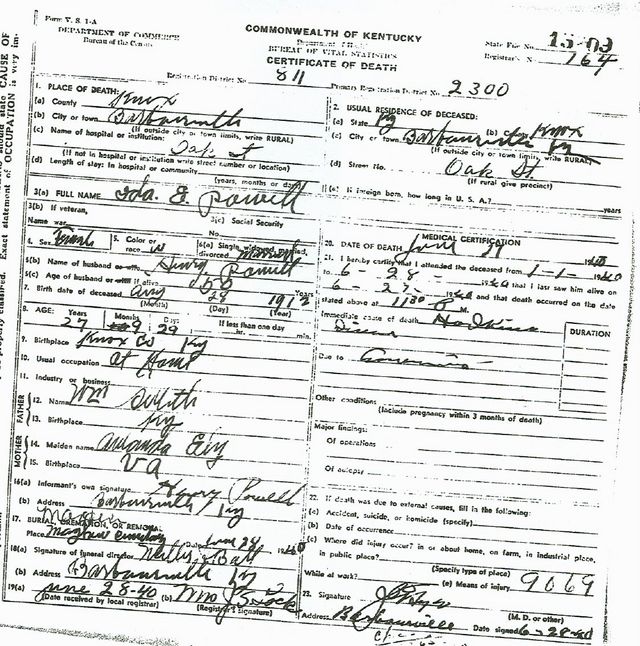 Form V. S. 1-A
DEPARTMENT OF COMMERCE
Bureau of the Census
COMMONWEALTH OF KENTUCKY
BUREAU OF VITAL STATISTICS
CERTIFICATE OF DEATH
State File No.
Registrar's N 164
Registration District No. 811
Primary Registration District No. 2300
Exact statement of OCCUPATION is very
1. PLACE OF DEATH:
(a) County Knox
(b) City or town Barbourville
(If outside city or town limits, write RURAL)
(c) Name of hospital or institution:
Oak St
(If not in hospital or institution write street number or location)
(d) Length of stay: In hospital or community
(years, months or days)
2. USUAL RESIDENCE OF DECEASED:
(a) State Ky (b) Knox
(c) City or town Barbourville Ky
(If outside city or town limits, write RURAL)
(d) Street No. Oak St.
(If rural give precinct)
(e) If foreign born, how long in U. S. A.? years
3(a) FULL NAME Ida. E. Powell
3(b) If veteran,
Name war
3(c) Social Security
No.
4. Sex Female
5. Color or
race W
6(a) Single, widowed, married,
divorced Married
6(b) Name of husband or wife Henry Powell
6(c) Age of husband or wife if alive 50 Years
7. Birth date of deceased Aug 28 1912
(Month) (Day) (Year)
8. AGE: Years Months Days If less than one day
27 9 29 hr. min.
9. Birthplace Knox Co Ky
10. Usual occupation At Home
11. Industry or business
FATHER
12. Name Wm
13. Birthplace Ky
MOTHER
14. Maiden name Amanda Ely
15. Birthplace VA
16(a) Informant's own signature Henry Powell
(b) Address Barbourville Ky
17. BURIAL, CREMATION, OR REMOVAL
Place Cemetery Date June 28 1940
18(a) Signature of funeral director
(b) Address Barbourville Ky
19(a) June 28-40 (b)
(Date received by local registrar) (Registrar's signature)
MEDICAL CERTIFICATION
20. DATE OF DEATH June 27 1940
21. I hereby certify that I attended the deceased from 1-1- 1940
to 6-28- 1940 that I last saw him alive on
6-27- 1940 and that death occurred on the date
stated above at 1130 M.
Immediate cause of death Hodkins
Disease
DURATION
Due to
Other conditions
(Include pregnancy within 3 months of death)
Major findings:
Of operations
Of autopsy
22. If death was due to external causes, fill in the following:
(a) Accident, suicide, or homicide (specify)
(b) Date of occurrence
(c) Where did injury occur? in or about home, on farm, in industrial place,
in public place?
(Specify type of place)
While at work? (e) Means of injury 9069
23. Signature
(M. D. or other)
Address Barbourville Date signed 6-28-40